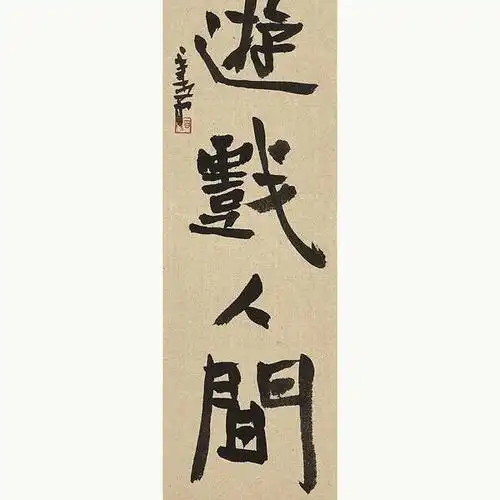 遊戲人間